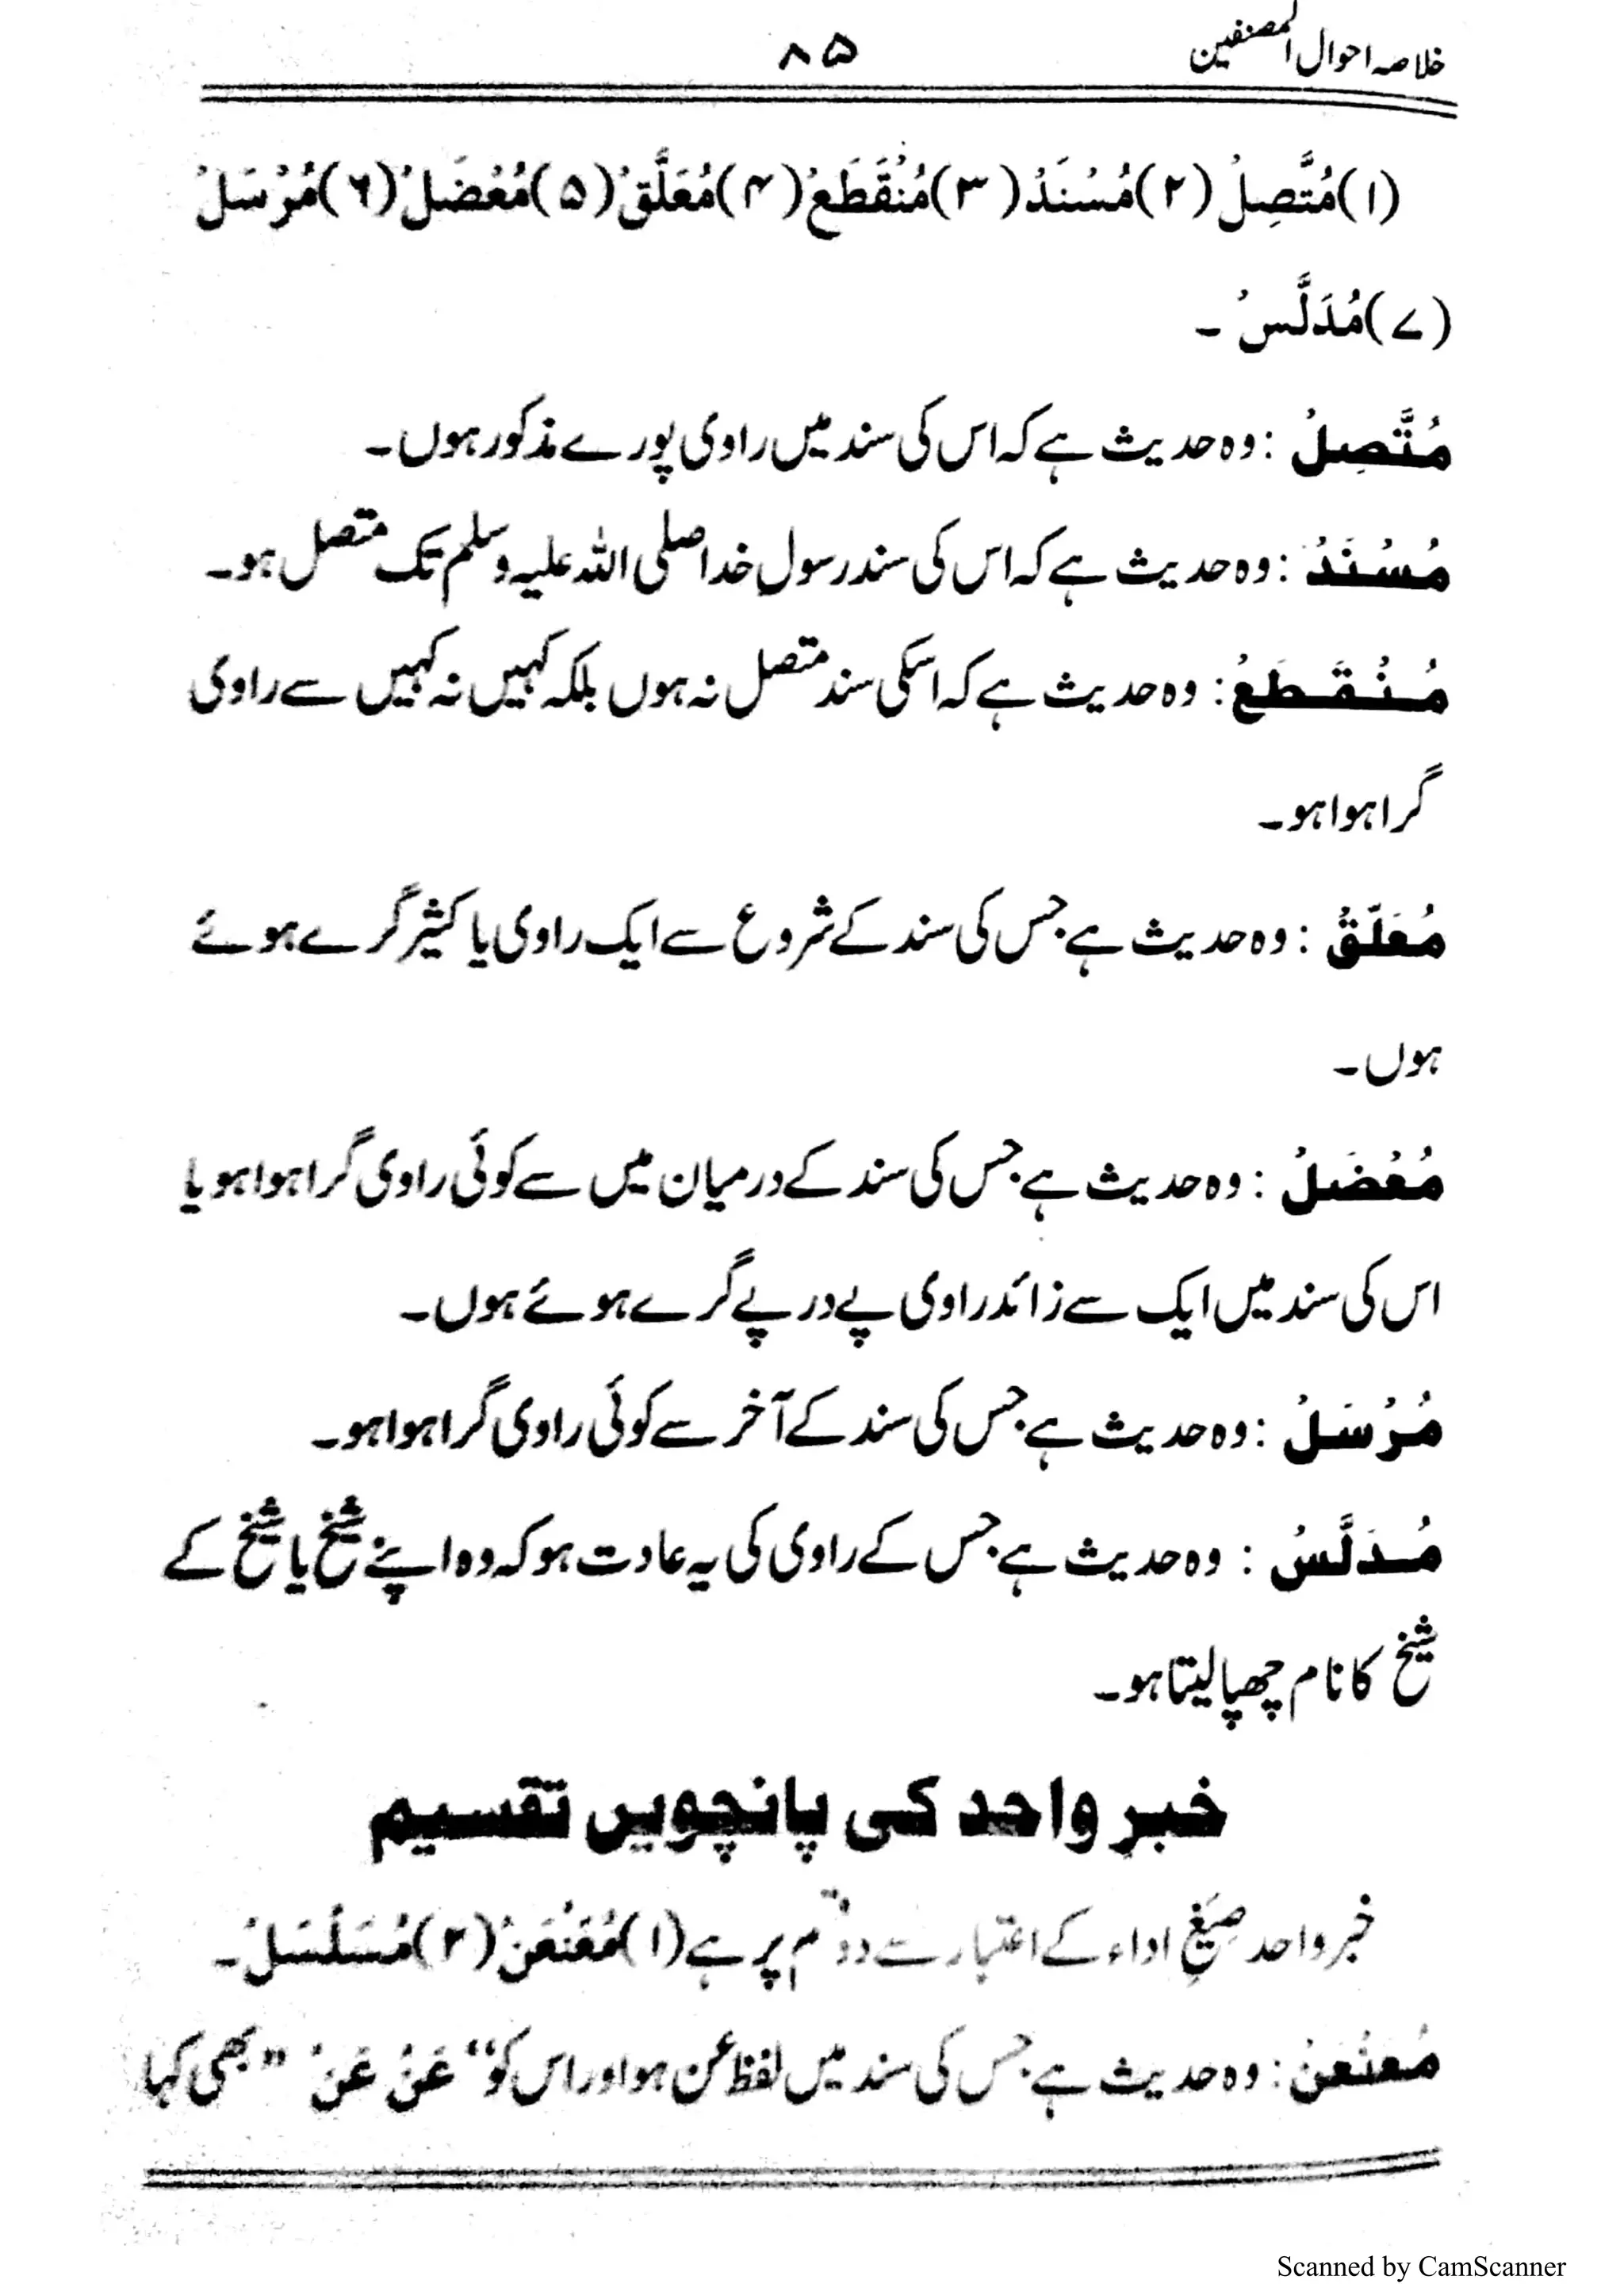 خلاصہ احوال المصنفین ۸۵
(۱) مُتَّصِلُ (۲) مُسْنَدُ (۳) مُنْقَطَعُ (۴) مُعَلَّقُ (۵) مُعْضَلُ (۶) مُرْسَلُ
(۷) مُدَلَّسُ ۔
مُتَّصِلُ : وہ حدیث ہے کہ اس کی سند میں راوی پورے مذکور ہوں۔
مُسْنَدُ : وہ حدیث ہے کہ اس کی سند رسولِ خدا صلی اللہ علیہ وسلم تک متصل ہو۔
مُنْقَطَعُ : وہ حدیث ہے کہ اسکی سند متصل نہ ہوں بلکہ کہیں نہ کہیں سے راوی
گرا ہوا ہو۔
مُعَلَّقُ : وہ حدیث ہے جس کی سند کے شروع سے ایک راوی یا کثیر گرے ہوئے
ہوں۔
مُعْضَلُ : وہ حدیث ہے جس کی سند کے درمیان میں سے کوئی راوی گرا ہوا ہو یا
اس کی سند میں ایک سے زائد راوی پے در پے گرے ہوئے ہوں۔
مُرْسَلُ : وہ حدیث ہے جس کی سند کے آخر سے کوئی راوی گرا ہوا ہو۔
مُدَلَّسُ : وہ حدیث ہے جس کے راوی کی یہ عادت ہو کہ وہ اپنے شیخ یا شیخ کے
شیخ کا نام چھپا لیتا ہو۔
خبر واحد کی پانچویں تقسیم
خبر واحد صِیَغِ اداء کے اعتبار سے دو قسم پر ہے (۱) مُعَنْعَنُ (۲) مُسَلْسَلُ۔
مُعَنْعَنُ : وہ حدیث ہے جس کی سند میں لفظ عن ہو اور اس کو “عَنْ عَنْ ” بھی کہا
Scanned by CamScanner